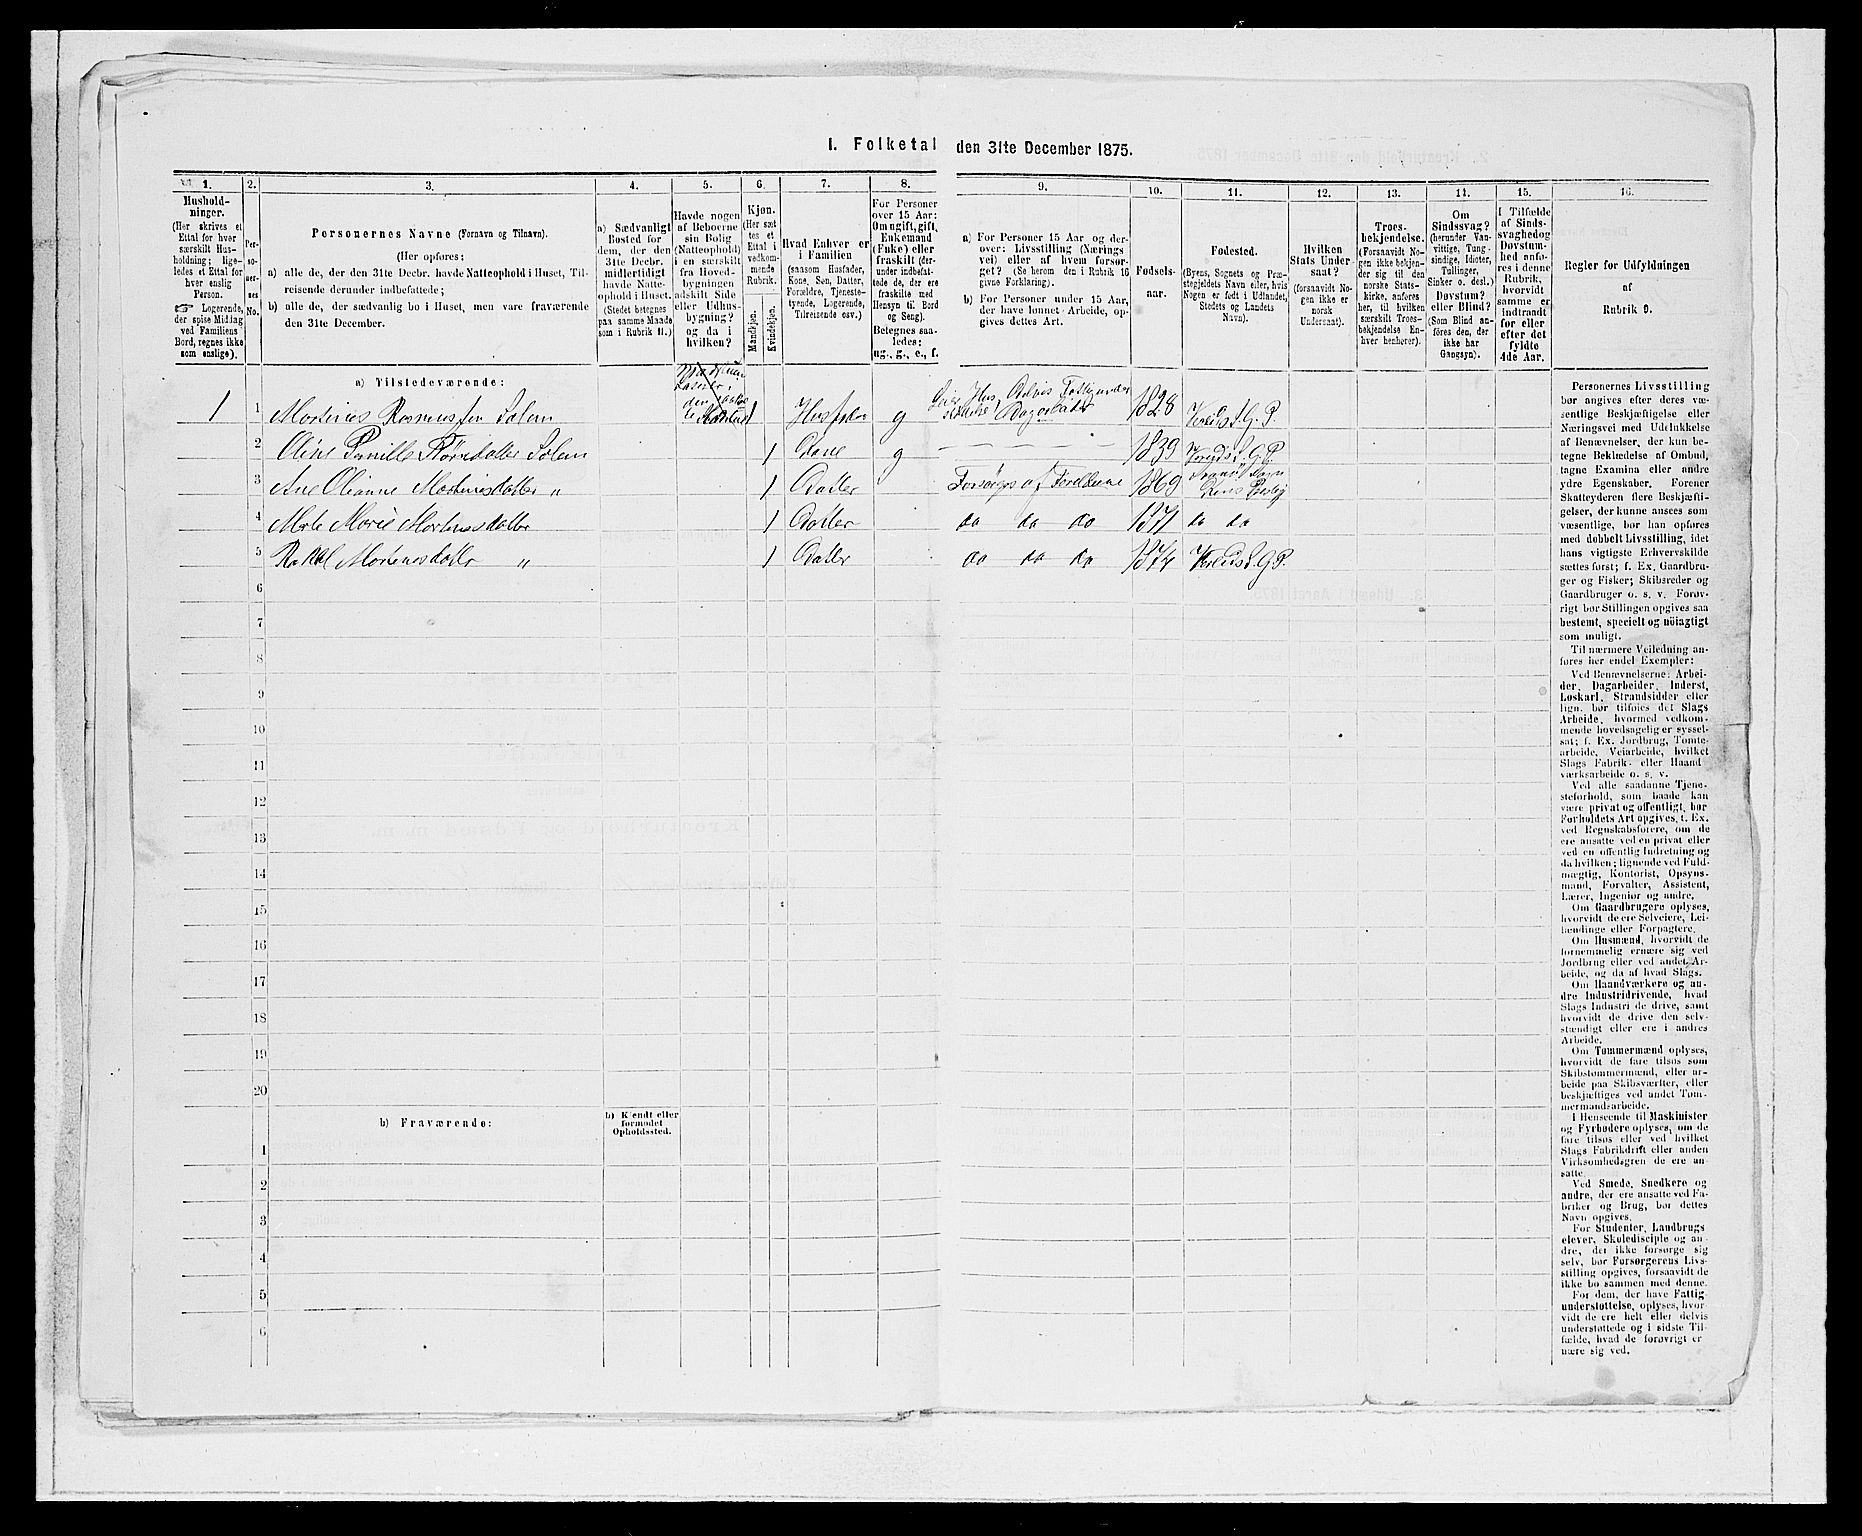 I. Folketal den 31te December 1875.
1. 2. 3. 4. 5. 6. 7. 8. 9. 10. 11. 12. 13. 14. 15. 16.
Hushold-
ninger.
(Her skrives et
Ettal for hver
særskilt Hus-
holdning; lige-
ledes et Ettal for
hver enslig
Person.
☞ Logerende,
der spise Middag
ved Familiens
Bord, regnes ikke
som enslige).
Per-
so-
ner-
nes
No.
Personernes Navne (Fornavn og Tilnavn).
(Her opføres:
a) alle de, der den 31te Decbr. havde Natteophold i Huset, Til-
reisende derunder indbefattede;
b) alle de, der sædvanlig bo i Huset, men vare fraværende
den 31te December.
a) Sædvanligt
Bosted for
dem, der den
31te Decbr.
midlertidigt
havde Natte-
ophold i Huset.
(Stedet betegnes
paa samme Maade
som i Rubrik 11.)
Havde nogen
af Beboerne
sin Bolig
(Natteophold)
i en særskilt
fra Hoved-
bygningen
adskilt Side
eller Udhus-
bygning?
og da i
hvilken?
Kjøn.
(Her sæt-
tes et
Ettal i
vedkom-
mende
Rubrik.
Mandkjøn.
Kvindekjøn.
Hvad Enhver er
i Familien
(saasom Husfader,
Kone, Søn, Datter,
Forældre, Tjeneste-
tyende, Logerende,
Tilreisende osv.)
For Personer
over 15 Aar:
Om ugift, gift,
Enkemand
(Enke) eller
fraskilt (der-
under indbefat-
tede de, der ere
fraskilte med
Hensyn til Bord
og Seng).
Betegnes saa-
ledes:
ug., g., e., f.
a) For Personer 15 Aar og der-
over: Livsstilling (Nærings-
vei) eller af hvem forsør-
get? (Se herom den i Rubrik 16
givne Forklaring).
b) For Personer under 15 Aar,
der have lønnet Arbeide, op-
gives dettes Art.
Fødsels-
aar.
Fødested.
(Byens, Sognets og Præ-
stegjeldets Navn eller, hvis
Nogen er født i Udlandet,
Stedets og Landets
Navn).
Hvilken
Stats Under-
saat?
(forsaavidt No-
gen ikke er
norsk
Undersaat).
Troes-
bekjendelse.
(Forsaavidt No-
gen ikke bekjen-
der sig til den
norske Stats-
kirke, anføres
her, til hvilken
særskilt Troes-
bekjendelse En-
hver henhører).
Om
Sindssvag?
(herunder Van-
vittige, Tung-
sindige, Idioter,
Tullinger,
Sinker o. desl.)
Døvstum?
eller Blind?
(Som Blind an-
føres den, der
ikke har
Gangsyn).
I Tilfælde
af Sinds-
svaghed og
Døvstum-
hed anfø-
res i denne
Rubrik,
hvorvidt
samme er
indtraadt
før eller
efter det
fyldte
4de Aar.
Regler for Udfyldningen
af
Rubrik 9.
a) Tilstedeværende:
1 1 Mortinus Rasmussen Solem 1 Husfader g Hus Delvis Dagarbeider 1828 S. G. P.
2 Oline Solem 1 Kone g 1839 S. G. P.
3 Ane Olianne Mortinusdatter „ 1 Datter Forsørges af Forældrene 1869
4 Marie Mortinusdatter 1 Datter do do do 1871 do do
5 Mortinusdatter „ 1 Datter do do do 1874 S. G. P.
6
7
8
9
10
11
12
13
14
15
16
17
18
19
20
b) Fraværende:
b) Kjendt eller
formodet
Opholdssted.
1
2
3
4
5
6
Personernes Livsstilling
bør angives efter deres væ-
sentlige Beskjæftigelse eller
Næringsvei med Udelukkelse
af Benævnelser, der kun be-
tegne Beklædelse af Ombud,
tagne Examina eller andre
ydre Egenskaber. Forener
Skatteyderen flere Beskjæfti-
gelser, der kunne ansees som
væsentlige, bør han opføres
med dobbelt Livsstilling, idet
hans vigtigste Erhvervskilde
sættes først; f. Ex. Gaardbru-
ger og Fisker; Skibsreder og
Gaardbruger o. s. v. Forøv-
rigt bør Stillingen opgives saa
bestemt, specielt og nöiagtigt
som muligt.
Til nærmere Veiledning an-
føres her endel Exempler:
Ved Benævnelserne: Arbei-
der, Dagarbeider, Inderst,
Løskarl, Strandsidder eller
lign. bør tilføies det Slags
Arbeide, hvormed vedkom-
mende hovedsagelig er syssel-
sat; f. Ex. Jordbrug, Tomte-
arbeide, Veiarbeide, hvilket
Slags Fabrik- eller Haand-
værksarbeide o. s. v.
Ved alle saadanne Tjene-
steforhold, som baade kan
være privat og offentligt, bør
Forholdets Art opgives, f. Ex.
ved Regnskabsførere, om de
ere ansatte ved en privat eller
ved en offentlig Indretning og
da hvilken; lignende ved Fuld-
mægtig, Kontorist, Opsyns-
mand, Forvalter, Assistent,
Lærer, Ingeniør og andre.
Om Gaardbrugere oplyses,
hvorvidt de ere Selveiere, Lei-
lændinge eller Forpagtere.
Om Husmænd, hvorvidt de
fornemmelig ernære sig ved
Jordbrug eller ved andet Ar-
beide, og da af hvad Slags.
Om Haandværkere og an-
dre Industridrivende, hvad
Slags Industri de drive, samt
hvorvidt de drive den selv-
stændigt eller ere i andres
Arbeide.
Om Tømmermænd oplyses,
hvorvidt de fare tilsøs som
Skibstømmermænd, eller ar-
beide paa Skibsværfter, eller
beskjæftiges ved andet Tøm-
mermandsarbeide.
I Henseende til Maskinister
og Fyrbødere oplyses, om de
fare tilsøs eller ved hvilket
Slags Fabrikdrift eller anden
Virksomhedsgren de ere an-
satte.
Ved Smede, Snedkere og
andre, der ere ansatte ved Fa-
briker og Brug, bør dettes
Navn opgives.
For Studenter, Landbrugs-
elever, Skoledisciple og an-
dre, der ikke forsørge sig
selv, bør Forsørgerens Livs-
stilling opgives, forsaavidt de
ikke bo sammen med denne.
For dem, der have Fattig-
understøttelse, oplyses, hvor-
vidt de ere helt eller delvis
understøttede og i sidste Til-
fælde, hvad de forøvrigt er-
nære sig ved.